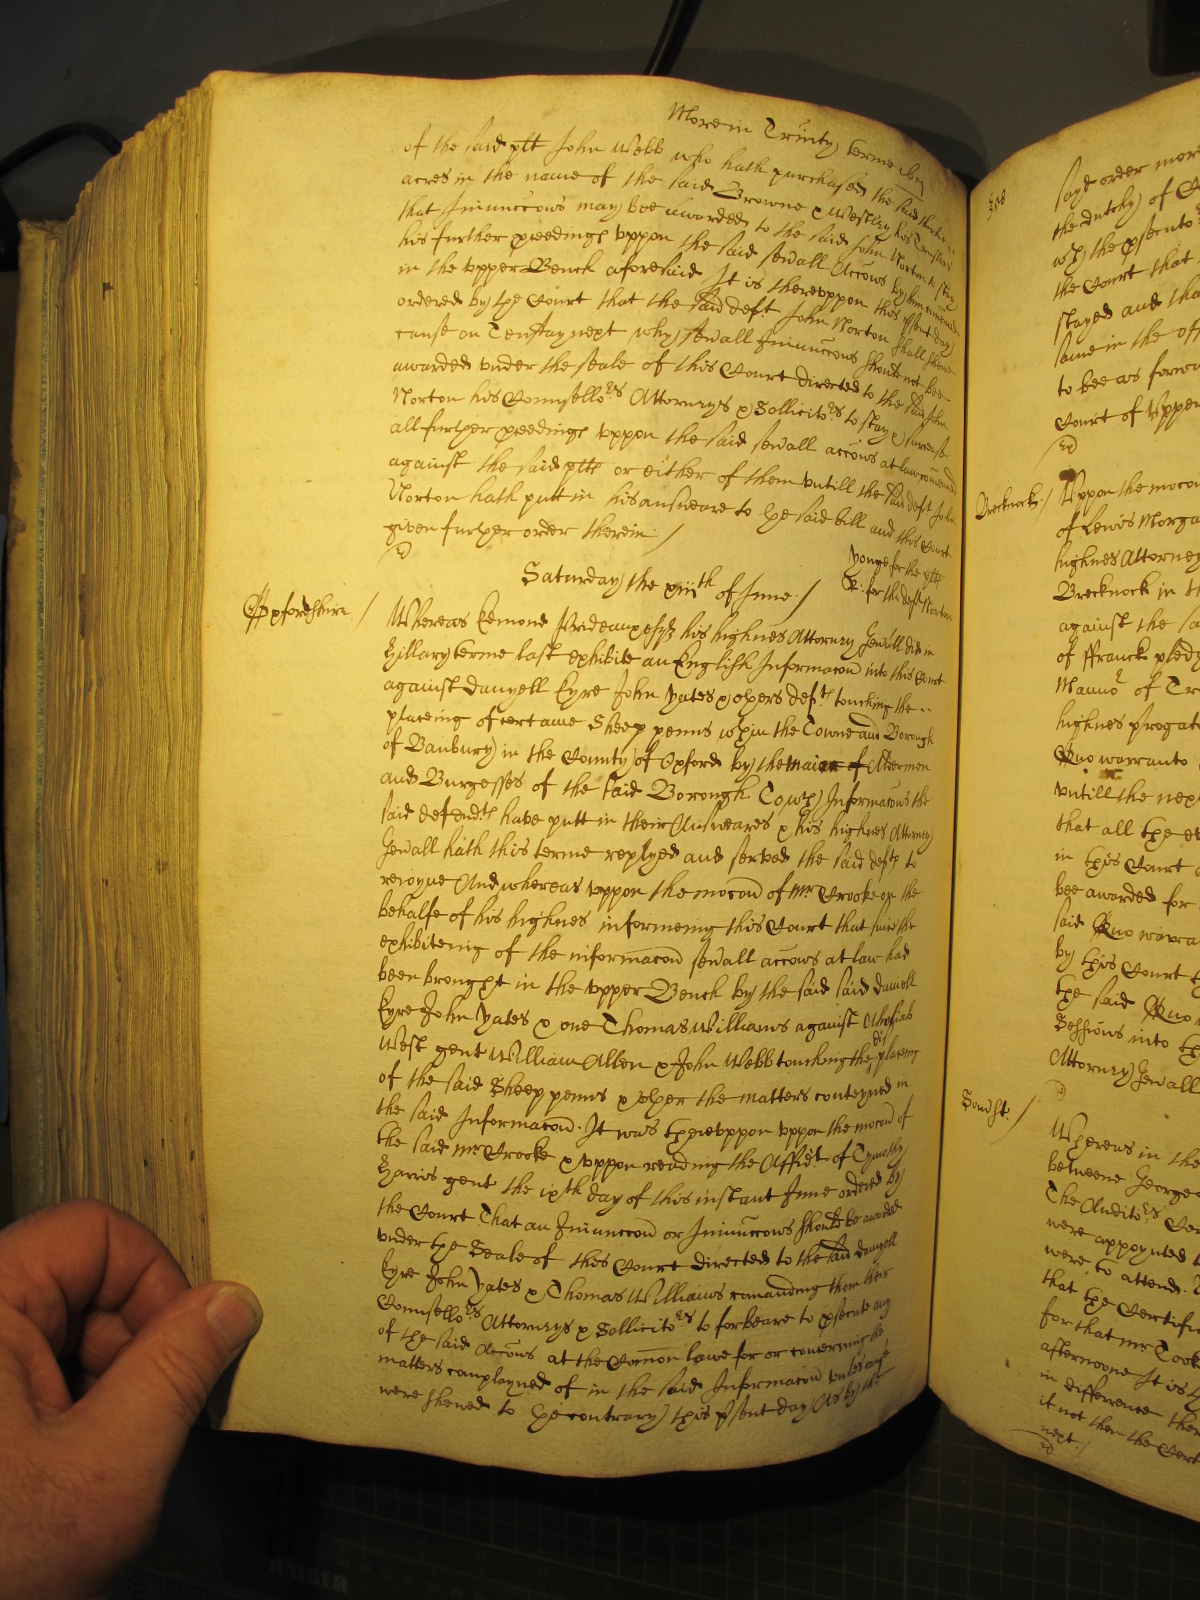 More in Trinity terme 1657
of the said plt John Webb who hath purchased the said
acres in the name of the said Browne & Westley his Trustees
that Iniunccons may bee awarded to the said John Norton to stay
his further pceedings vppon the said seuall Accons by him
in the vpper Bench aforesaid It is therevppon this psent day
ordered by the Court that the said deft John Norton shall shew
cause on Teusday next why seuall Iniunccons should not bee
awarded vnder the seale of this Court directed to the said John
Norton his Counsello:rs Attorneys & Sollicito:rs to stay & surcease
all further pceedings vppon the said seuall accons at law comenced
against the said plts or either of them vntill the said deft John
Norton hath putt in his answeare to the said bill and this Court
given further order therein /
Yonge for the plts
for the deft Norton
Saturday the xiiith of June /
Oxfordshire /
Whereas Edmond Prideaux esqr his highnes Attorney Genall did in
Hillary terme last exhibite an English Informacon into this Court
against Danyell Eyre John Yates & others defts touching the
placeing of certaine Sheep penns wthin the Towne and Borough
of Banbury in the County of Oxford by the maior of Aldermen
and Burgesses of the said Borough To wch Informacon the
said defendts have putt in their Answeares & his highnes Attorney
Genall hath this terme replyed and served the said defts to
reioyne And whereas vppon the mocon of Mr Crooke on the
behalfe of his highnes informeing this Court that since the
exhibiteing of the informacon seuall accons at law had
been brought in the vpper Bench by the said said Daniell
Eyre John Yates & one Thomas Williams against
West gent William Allen & John Webb touching the displaceing
of the said Sheep penns & other the matters conteyned in
the said Informacon. It was therevppon vppon the mocon of
the said Mr Crooke & vppon reading the Affidt of Tymothy
Harris gent the ixth day of this instant June ordered by
the Court That an Iniunccon or Iniunccons should be awarded
vnder the Seale of this Court directed to the said Danyell
Eyre John Yates & Thomas Williams comanding them their
Counsello:rs Attorneys & Sollicito:rs to forbeare to psecute any
of the said Accons at the Comon lawe for or concerning the
matters complayned of in the said Informacon vnles cause
were shewed to the contrary this psent day As by the
308
sayd order more
the dutchy of
wch the psecuto
the Court that
stayed and tha
same in the off
to bee as forw
Court of Vpper
Brecknock /
Vppon the mocon
of Lewis Morga
highnes Attorney
Brecknock in th
against the sa
of ffranck pledg
Mannor of Tr
highnes progat
Quo warranto
vntill the nex
that all the
in this Court
bee awarded for
said Quo warra
by this Court
the said Quo
Sessions into
Attorney Genall
Whereas in the
betweene George
The Audito:rs
were appoynted
were to attend.
that the Certifi
for that Mr Cooke
afternoone It is
in difference the
if not then the Cert
next /